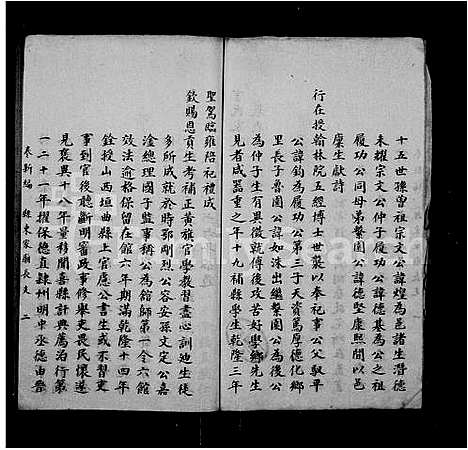 十五世孫曾祖宗文公諱煌為邑諸生潛德
未耀宗文公仲子履功公諱德基為公之祖
履功公同母弟繫園公諱德堅康熙間以邑
廩生獻詩
行在授翰林院五經博士世襲以奉祀事公父馭平
公諱鈞為履功公第三子天資篤厚德化鄉
里長子魯園公諱如洙出繼繫園公為後公
為仲子生有異徵就傅後攻苦好學鄉先生
見者咸器重之年十九補縣學生乾隆三年
聖駕臨雍陪祀禮成
欽賜恩貢生考補正黃旗官學教習盡心訓迪生徒
多所成就於時鄂剛烈公容安孫文定公嘉
淦總理國子監事稱公為館師第一令六館
效法逾格保留在館六年期滿乾隆十四年
銓授山西垣曲縣上官慮公書生或不習吏
事到官後聽斷明審政事修舉吏畏民懷遂
見褒與十八年量移聞喜縣計典薦治行最
一二十一年擢保德直隸州明中丞德由
奉新編 縣東家廟長支 二